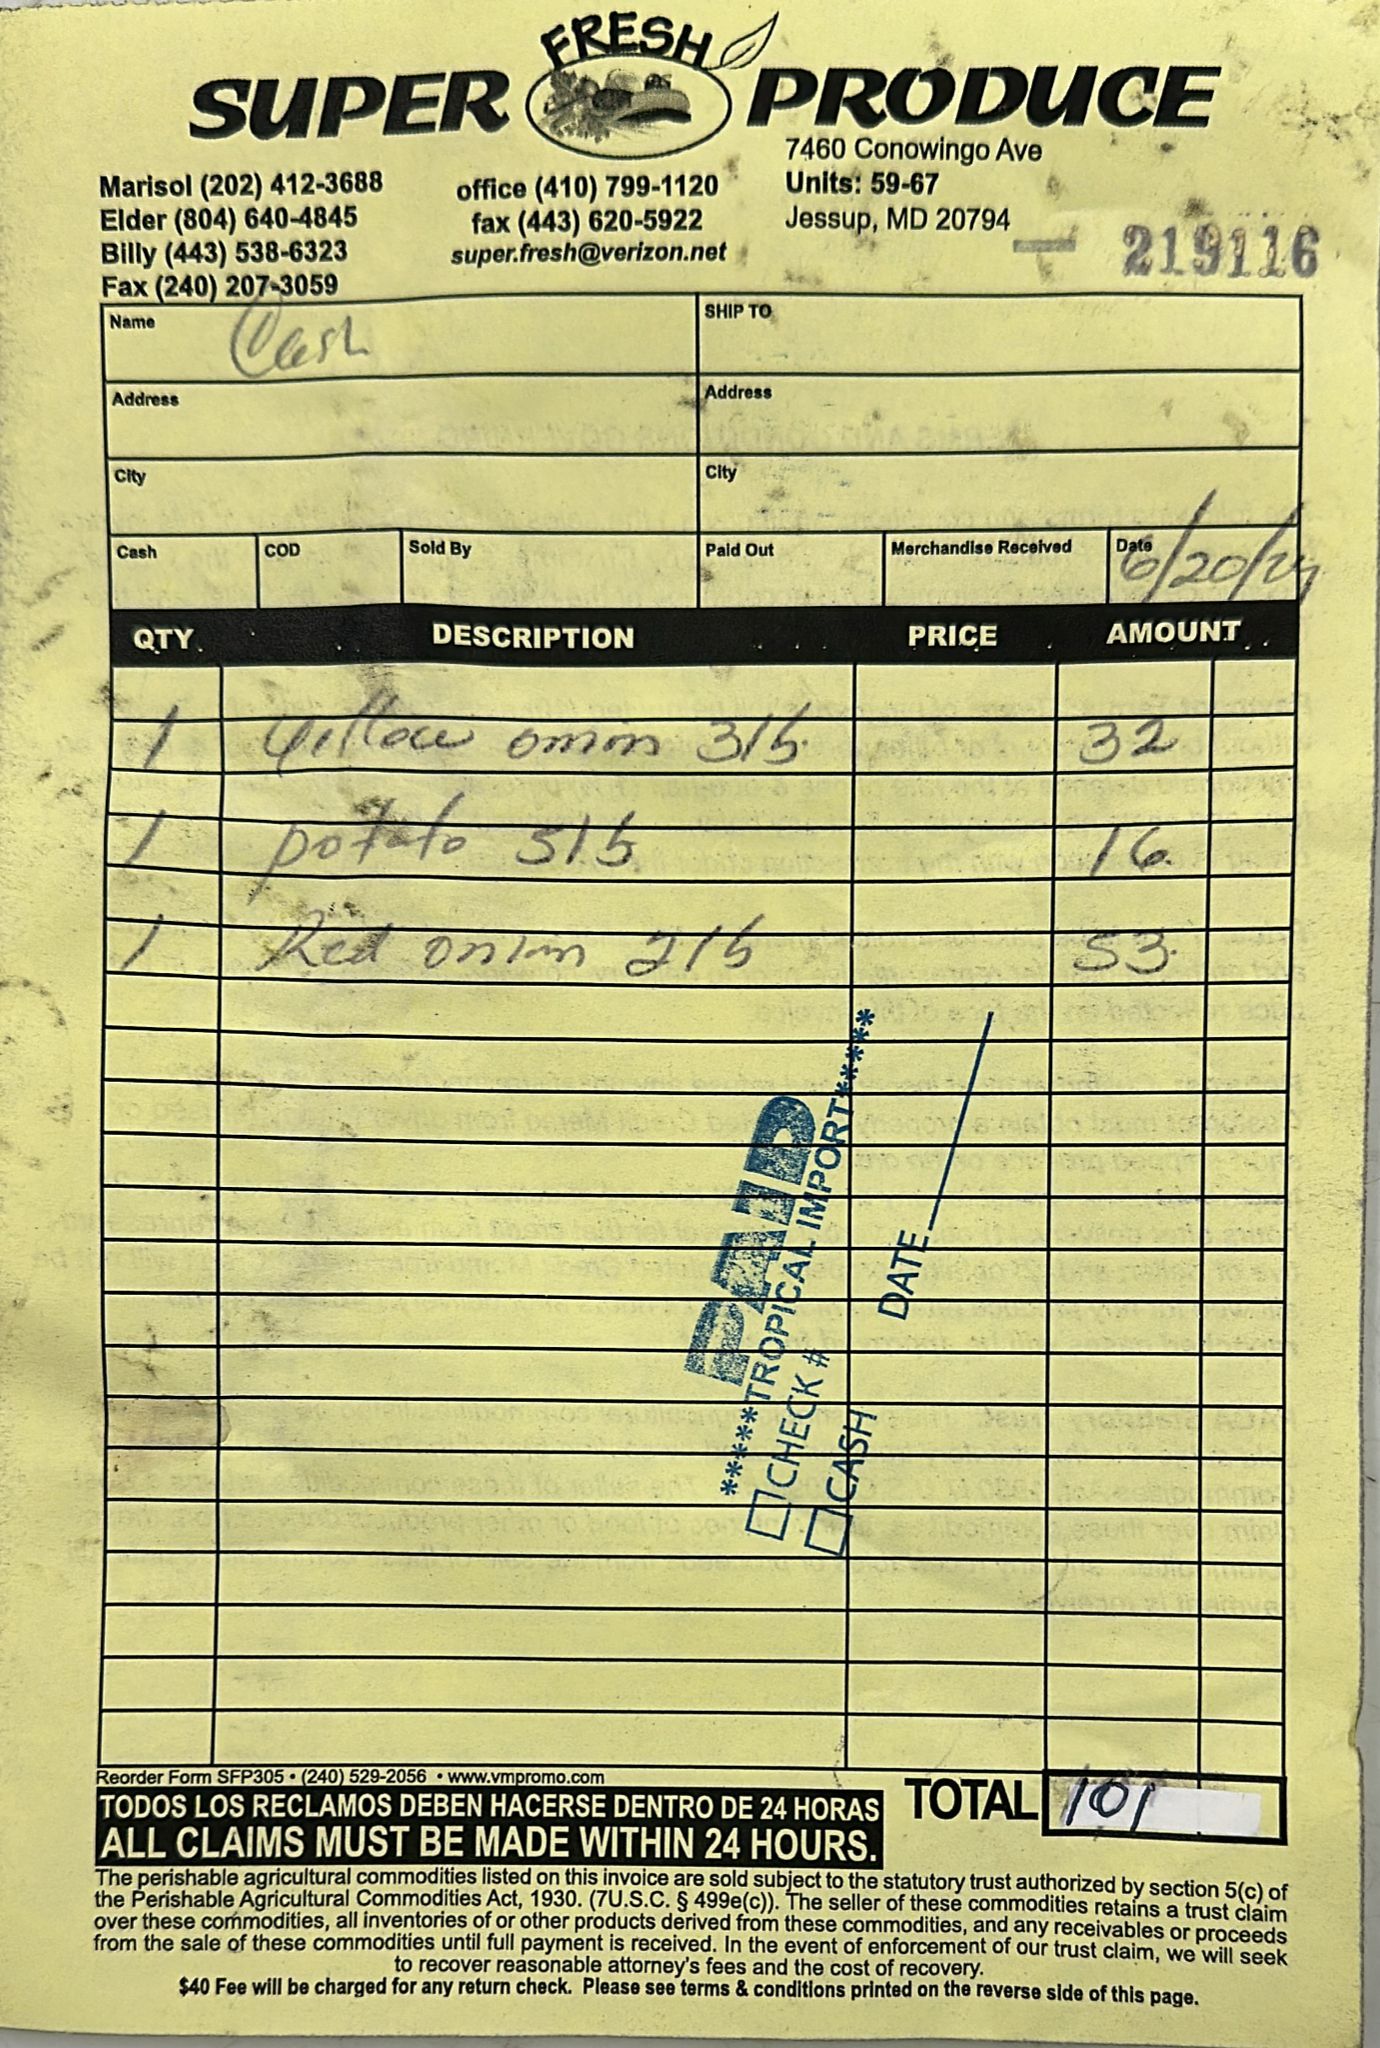 SUPER FRESH PRODUCE
7460 Conowingo Ave
Units: 59-67
Jessup, MD 20794
Marisol (202) 412-3688
Elder (804) 640-4845
Billy (443) 538-6323
Fax (240) 207-3059
office (410) 799-1120
fax (443) 620-5922
super.fresh@verizon.net
219116
Name Cash
SHIP TO
Address
Address
City
City
Cash COD Sold By Paid Out Merchandise Received Date 6/20/24
QTY. DESCRIPTION PRICE AMOUNT
1 yellow onion 3lb 32
1 potato 5lb 16
1 Red onion 2lb 53
PAID
*****TROPICAL IMPORT*****
CHECK #
CASH DATE
Reorder Form SFP305 • (240) 529-2056 • www.vmpromo.com
TOTAL 101
TODOS LOS RECLAMOS DEBEN HACERSE DENTRO DE 24 HORAS
ALL CLAIMS MUST BE MADE WITHIN 24 HOURS.
The perishable agricultural commodities listed on this invoice are sold subject to the statutory trust authorized by section 5(c) of
the Perishable Agricultural Commodities Act, 1930. (7U.S.C. § 499e(c)). The seller of these commodities retains a trust claim
over these commodities, all inventories of or other products derived from these commodities, and any receivables or proceeds
from the sale of these commodities until full payment is received. In the event of enforcement of our trust claim, we will seek
to recover reasonable attorney's fees and the cost of recovery.
$40 Fee will be charged for any return check. Please see terms & conditions printed on the reverse side of this page.